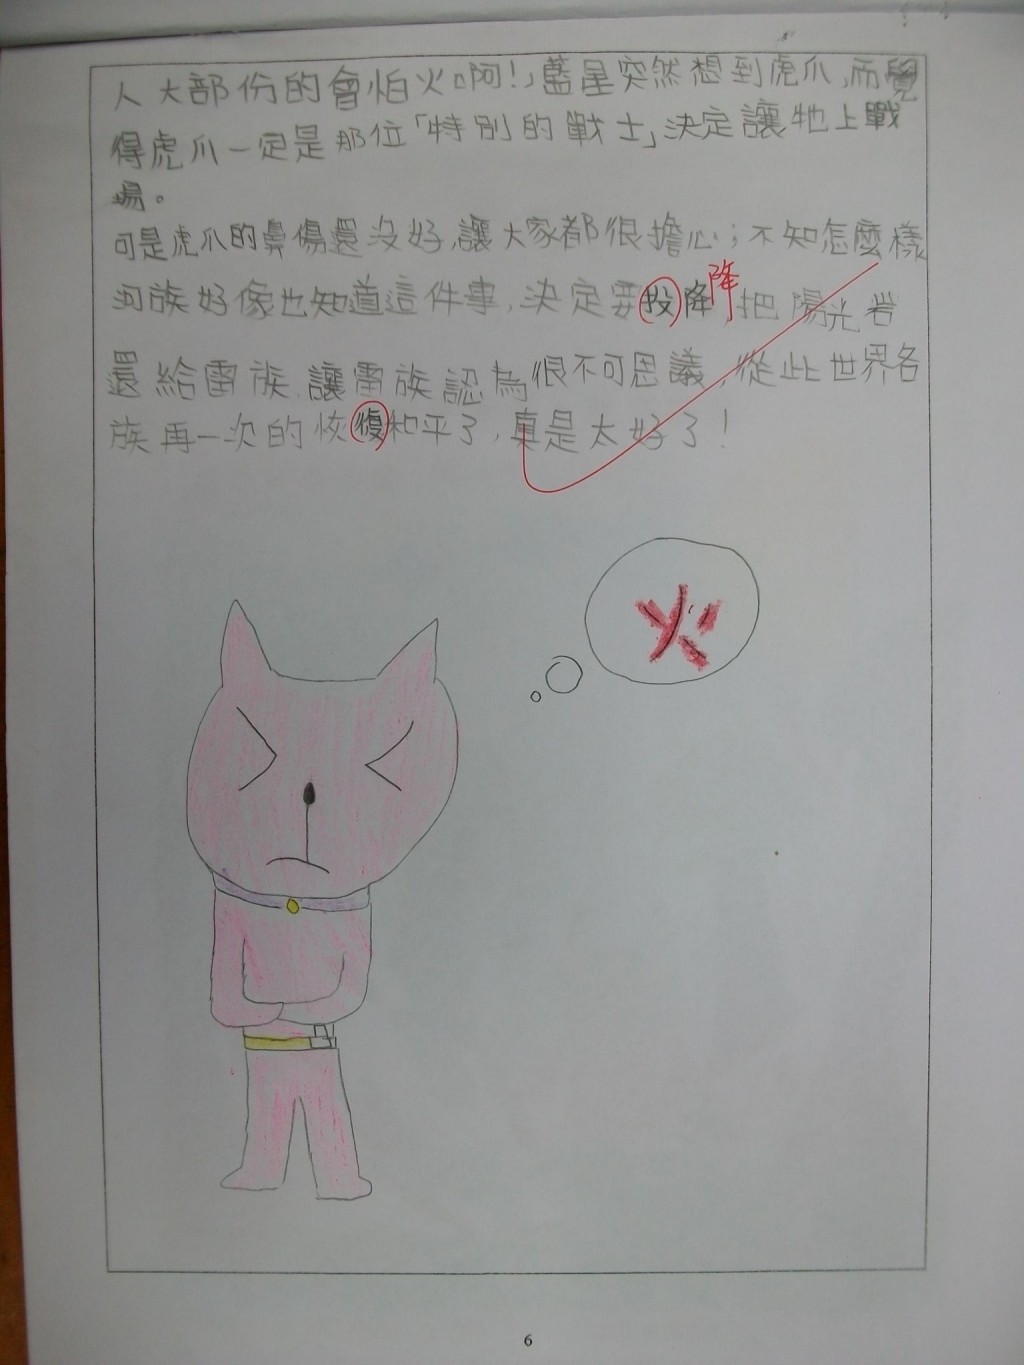 人大部份的會怕火啊!」藍星突然想到虎爪,而覺
得虎爪一定是那位「特別的戰士」決定讓牠上戰
場。
可是虎爪的鼻傷還沒好,讓大家都很擔心;不知怎麼樣
降
河族好像也知道這件事,決定要投降,把陽光岩
還給雷族,讓雷族認為很不可思議,從此世界各
族再一次的恢復和平了,真是太好了!
火
6